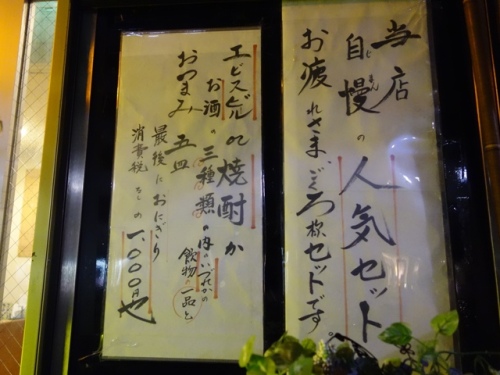 当店
自慢の人気セット
じまん
お疲れさまごくろう様セットです
エビスビール or 焼酎か
お酒の三種類の内のいづれかの
飲物一品と
おつまみ五皿
最後におにぎり
消費税なしの
一、〇〇〇円也